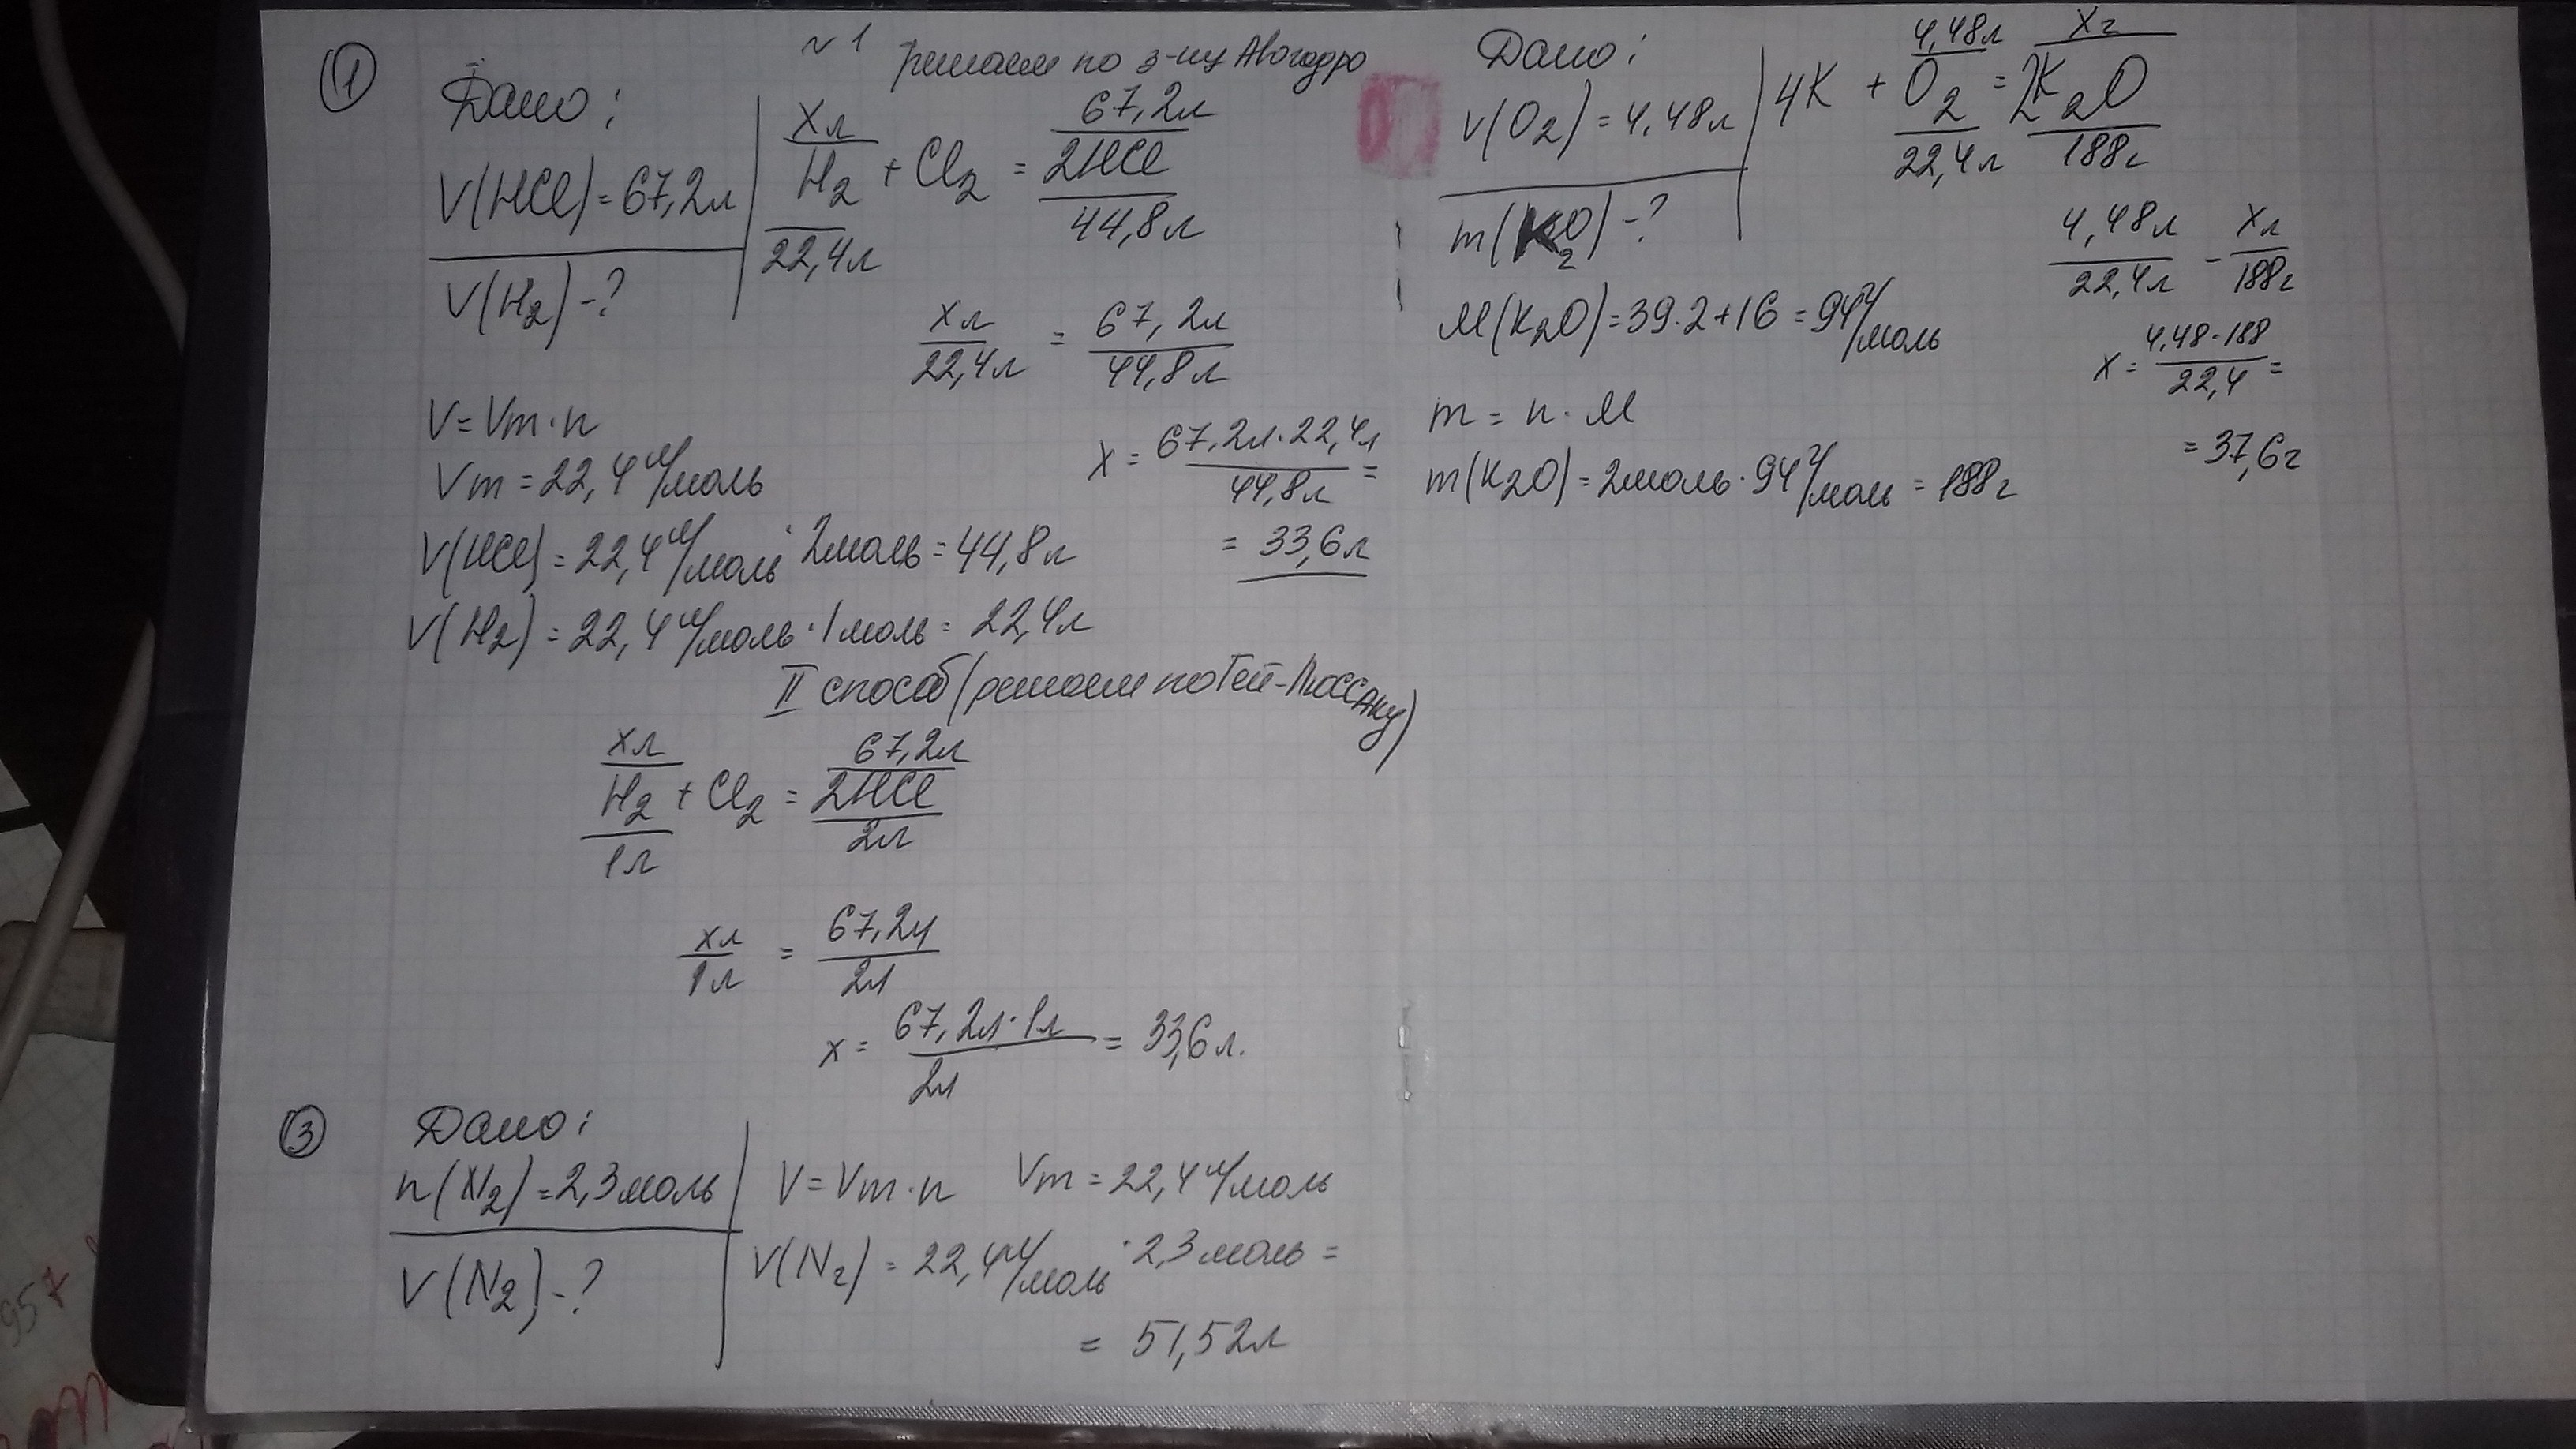 ① № 1 решаем по з-ну Авогадро
Дано:
V(HCl) = 67,2л
V(H2) - ?
xл 67,2л
H2 + Cl2 = 2HCl
22,4л 44,8л
xл/22,4л = 67,2л/44,8л
V = Vm · n
Vm = 22,4 л/моль
x = 67,2л · 22,4л/44,8л =
= 33,6л
V(HCl) = 22,4 л/моль · 2моль = 44,8л
V(H2) = 22,4 л/моль · 1моль = 22,4л
II способ (решаем по Гей-Люссаку)
xл 67,2л
H2 + Cl2 = 2HCl
1л 2л
xл/1л = 67,2л/2л
x = 67,2л · 1л/2л = 33,6л.
③ Дано:
n(N2) = 2,3моль
V(N2) - ?
V = Vm · n Vm = 22,4 л/моль
V(N2) = 22,4 л/моль · 2,3моль =
= 51,52л
Дано:
V(O2) = 4,48л
m(K2O) - ?
4,48л xг
4K + O2 = 2K2O
22,4л 188г
4,48л/22,4л - xл/188г
M(K2O) = 39·2+16 = 94 г/моль
x = 4,48·188/22,4 =
= 37,6г
m = n · M
m(K2O) = 2моль · 94 г/моль = 188г
957